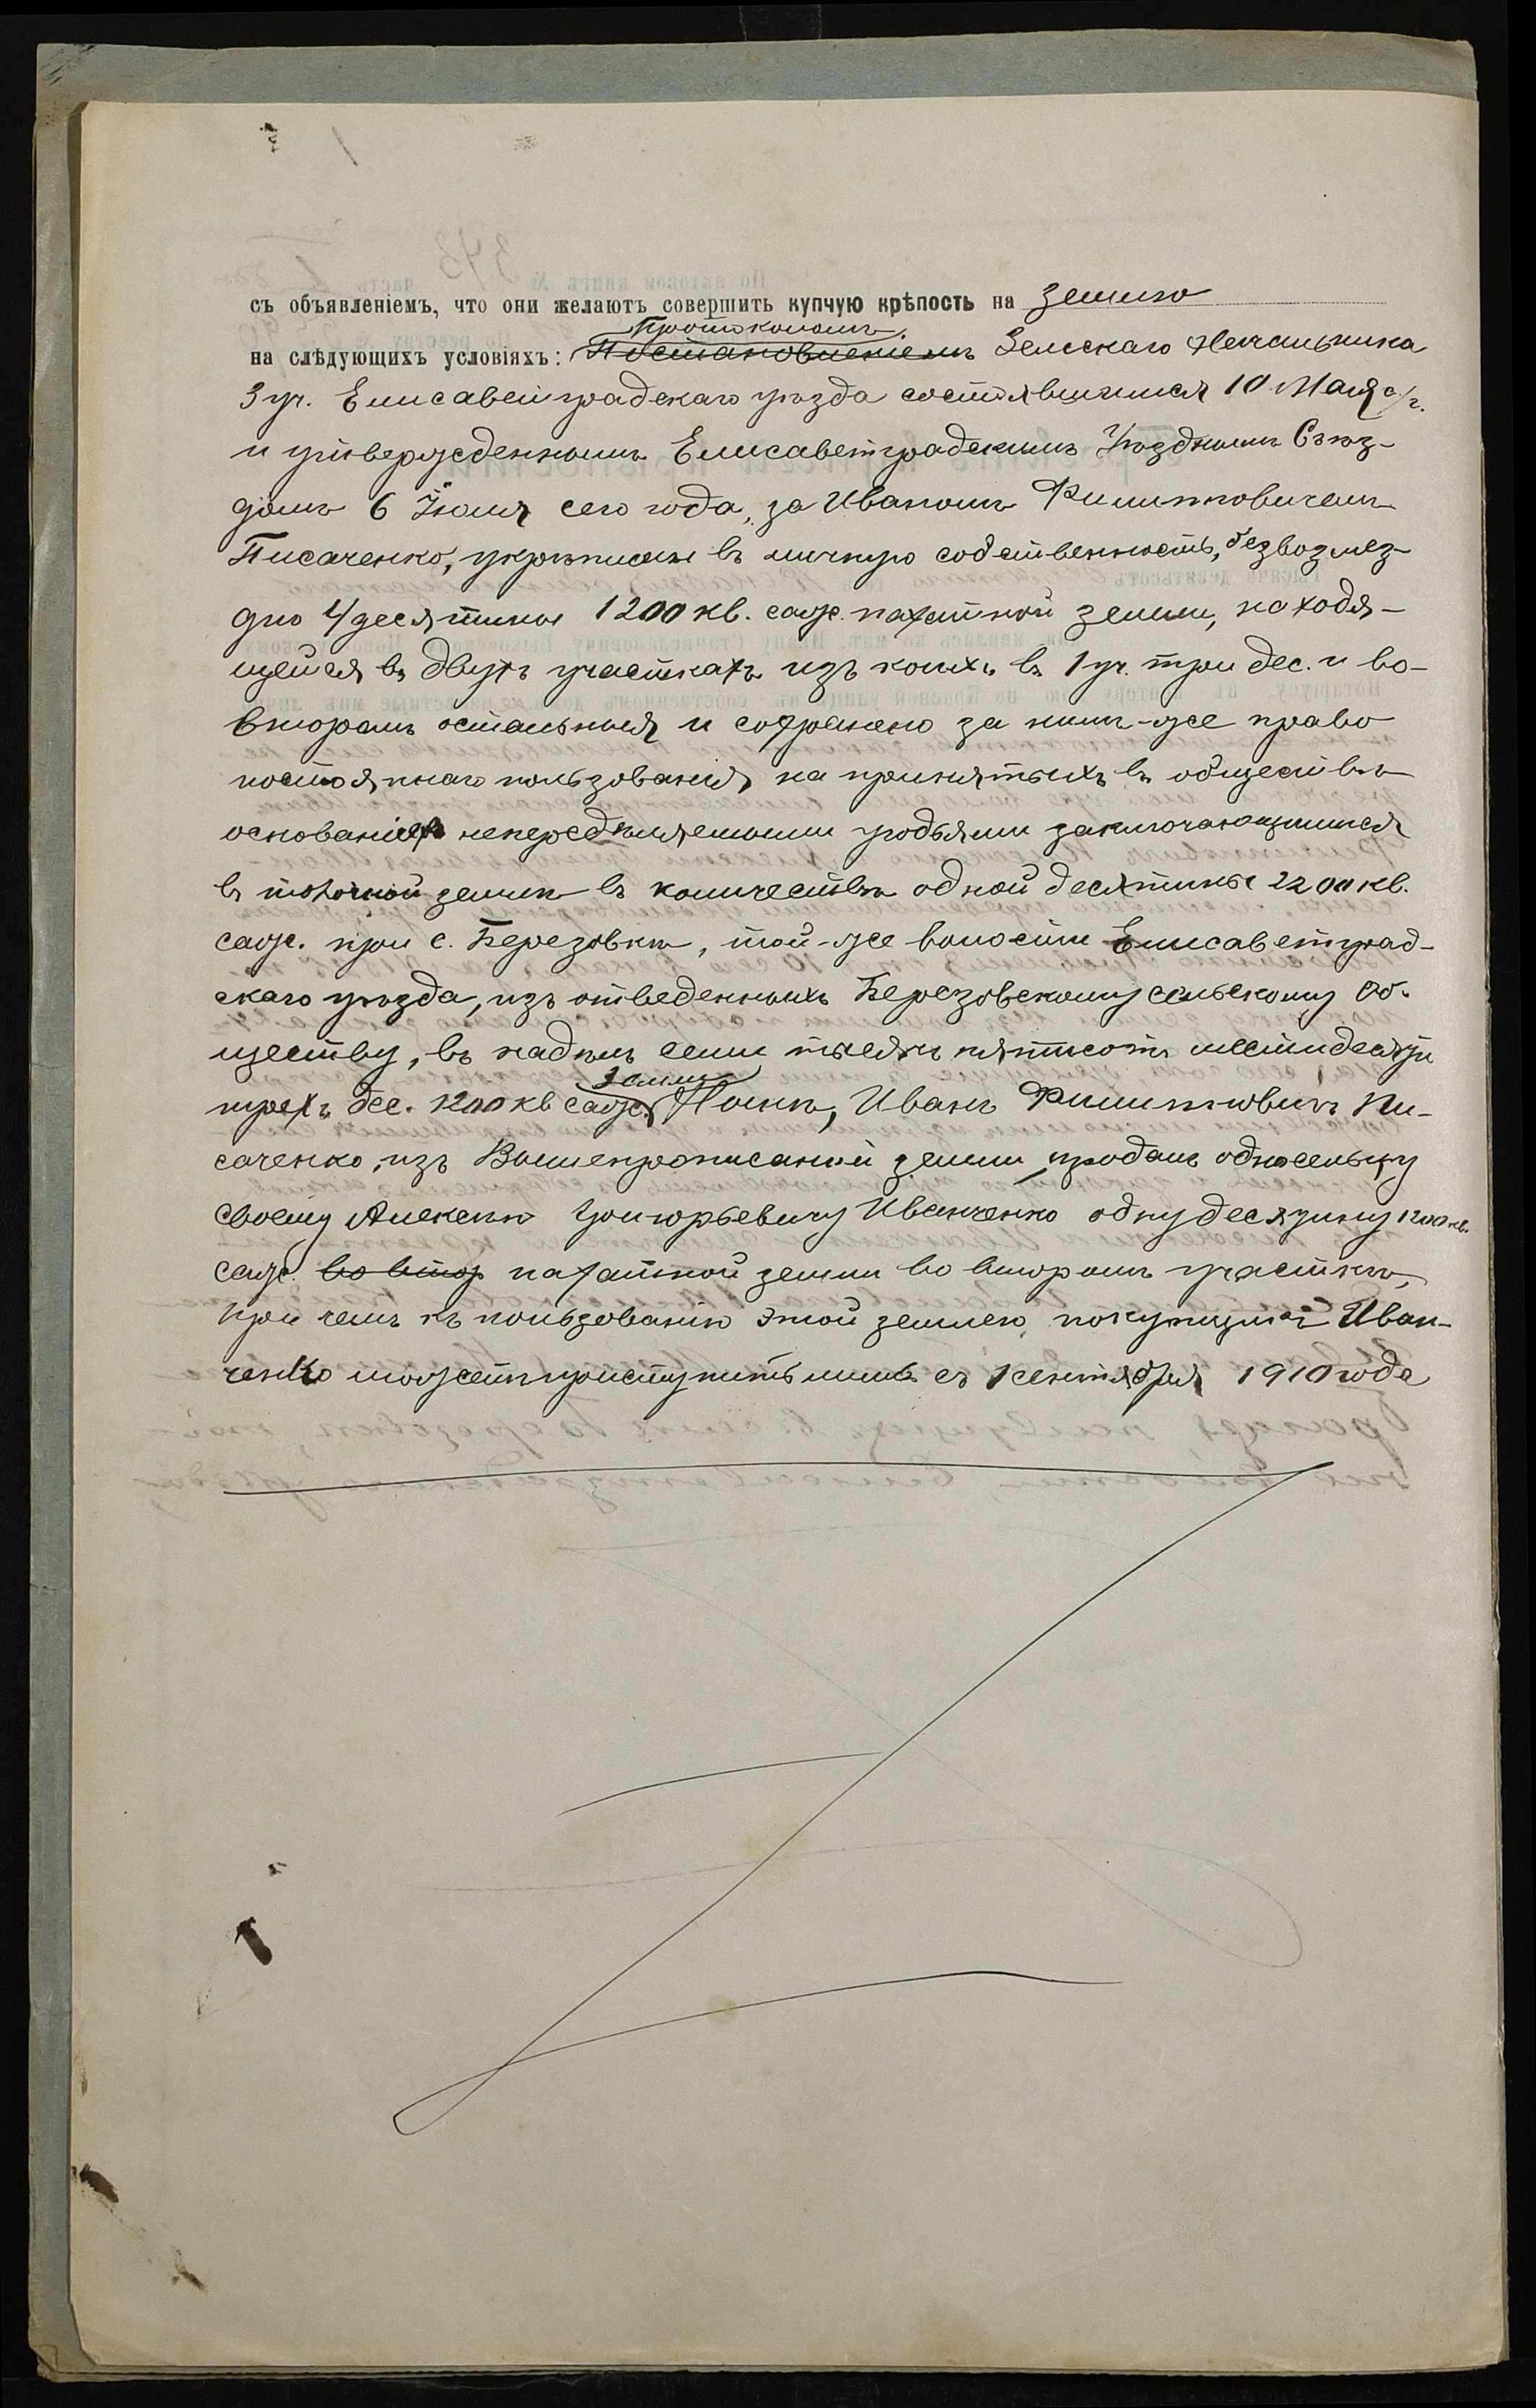 съ объявленіемъ, что они желаютъ совершить купчую крѣпость на землю
Протоколомъ
на слѣдующихъ условіяхъ: Постановленіемъ Земскаго Начальника
3 уч. Елисаветградскаго уѣзда состоявшимся 10 Мая с/г.
и утвержденнымъ Елисаветградскимъ Уѣзднымъ Съѣз-
домъ 6 Іюля сего года, за Иваномъ Филипповичемъ
Писаченко, укрѣплены въ личную собственность, безвозмез-
дно 4 десятины 1200 кв. саж. пахатной земли, находя-
щейся въ двухъ участкахъ изъ коихъ въ 1 уч. три дес. и во-
второмъ остальныя и сохранено за нимъ-же право
постояннаго пользованія, на принятыхъ въ обществѣ
основаніяхъ непередѣляемыми угодьями заключающимися
въ толочной землѣ въ количествѣ одной десятины 2200 кв.
саж. при с. Березовкѣ, той-же волости Елисаветград-
скаго уѣзда, изъ отведенныхъ Березовскому сельскому Об-
ществу, въ надѣлъ семи тысячъ пятисотъ шестидесяти
земли
трехъ дес. 1200 кв саж. Нынѣ, Иванъ Филипповичъ Пи-
саченко, изъ Вышепрописанной земли продалъ односельцу
своему Алексѣю Григорьевичу Иванченко одну десятину 1200 кв.
саж. во втор пахатной земли во второмъ участкѣ,
при чемъ къ пользованію этой землею покупщикъ Иван-
ченко можетъ приступить лишь съ 1 сентября 1910 года